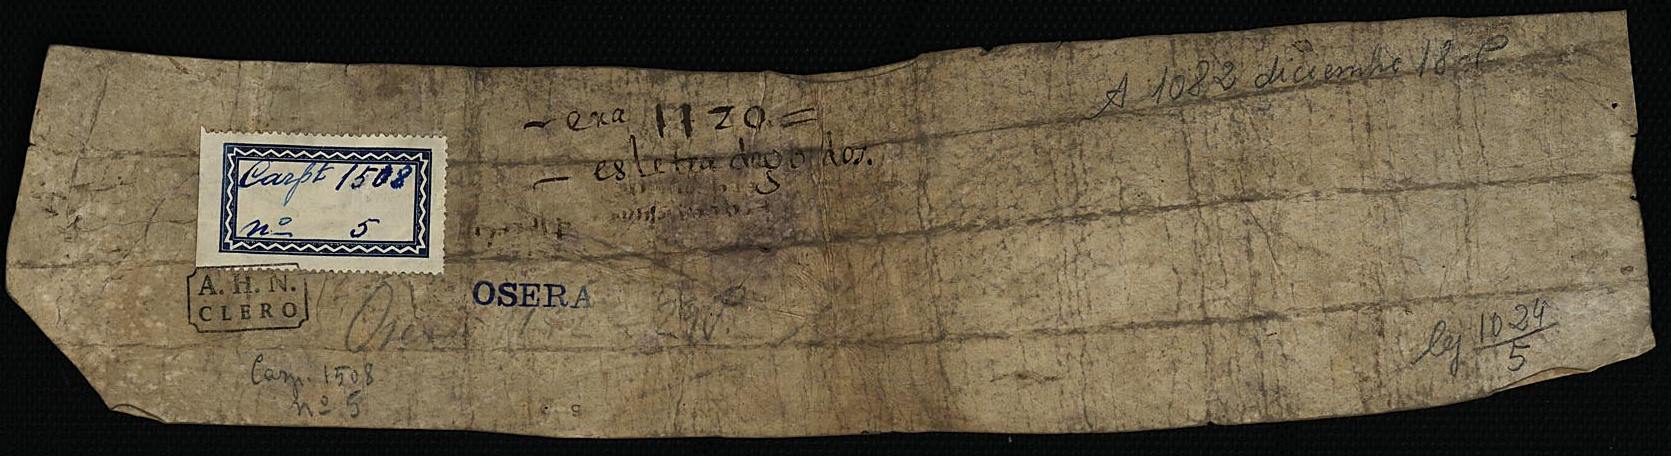 A 1082 diciembre 18
- era 1120 =
- es letra de godos.
Carpt 1508
nº 5
A. H. N.
CLERO
OSERA
Osera
leg 1024
5
Carp. 1508
nº 5